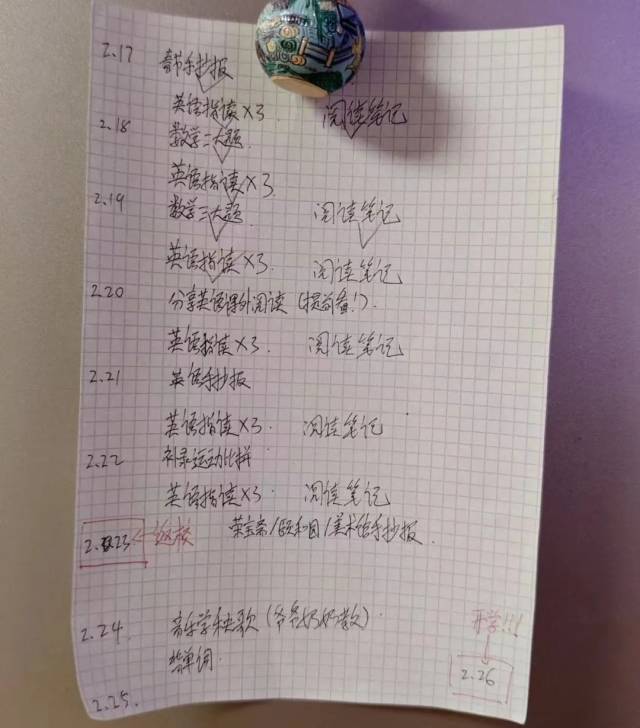 2.17 春节手抄报
英语指读×3 阅读笔记
2.18 数学二大题
英语指读×3
2.19 数学三大题 阅读笔记
英语指读×3 阅读笔记
2.20 分享英语课外阅读(提前看!).
英语指读×3. 阅读笔记
2.21 英语手抄报
英语指读×3. 阅读笔记
2.22 补录运动比拼
英语指读×3. 阅读笔记
2.23 ← 返校 荣宝斋/颐和园/美术馆手抄报.
2.24. 音乐学秧歌(爷爷奶奶教).
单词. 开学!!!
2.25. 2.26